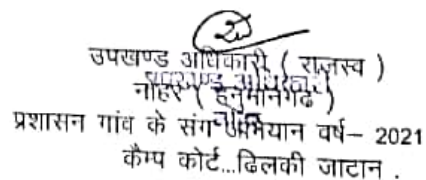 उपखण्ड अधिकारी ( राजस्व )
नोहर ( हनुमानगढ )
प्रशासन गांव के संग अभियान वर्ष– 2021
कैम्प कोर्ट...ढिलकी जाटान .